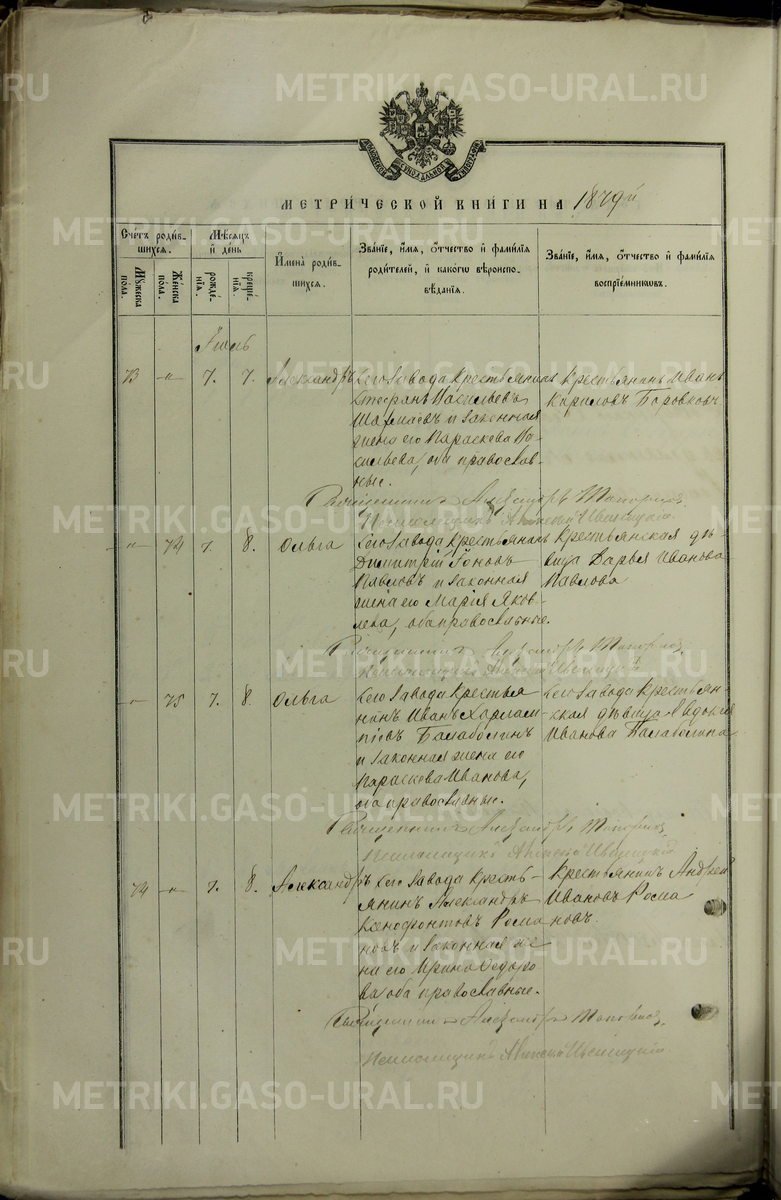 METRIKI.GASO-URAL.RU
МОСКОВСКОЙ СѴНОДАЛЬНОЙ ТИПОГРАФІИ
МЕТРИ́ЧЕСКОЙ КНИ́ГИ НА 1879й
Сче́тъ роди́вшихся.
Му́жеска по́ла.
Же́нска по́ла.
Мѣ́сяцъ и де́нь
рожде́нїя.
креще́нїя.
И҆мена̀ роди́вшихся.
Зва́нїе, и҆́мя, ѻ҆́тчество и҆ фами́лїя
роди́телей, и҆ како́гѡ вѣроиспо-
вѣ́данїя.
Зва́нїе, и҆́мя, ѻ҆́тчество и҆ фами́лїя
воспрїе́мникѡвъ.
Іюль
73 " 7. 7. Александръ
Сего завода крестьянинъ
Стефанъ Васильевъ
и законная
жена его Параскева Ва-
сильева, оба православ-
ные.
Крестьянинъ Иванъ
Кириловъ Боровковъ
Священникъ Александръ Топорков
Псаломщикъ Алексѣй
" 74 7. 8. Ольга
Сего завода крестьянинъ
Димитрій Іоновъ
Павловъ и законная
жена его Марія Яков-
лева, оба православные.
Крестьянская дѣ-
вица Дарья Иванова
Павлова
Священникъ Александръ Топорков
Псаломщикъ Алексѣй
" 75 7. 8. Ольга
Сего завода крестья
нинъ Иванъ Харлам-
піевъ Балаболинъ
и законная жена его
Параскева Иванова,
оба православные.
Сего завода крестьян-
ская дѣвица Евдокія
Иванова Балаболина
Священникъ Александръ Топорков
Псаломщикъ Алексѣй
74 " 7. 8. Александръ
Сего завода кресть-
янинъ Александръ
Ксенофонтовъ Рома
новъ и законная же
на его Ирина Ѳедоро
ва, оба православные.
Крестьянинъ Андрей
Ивановъ Рома
новъ.
Священникъ Александръ Топорков
Псаломщикъ Алексѣй